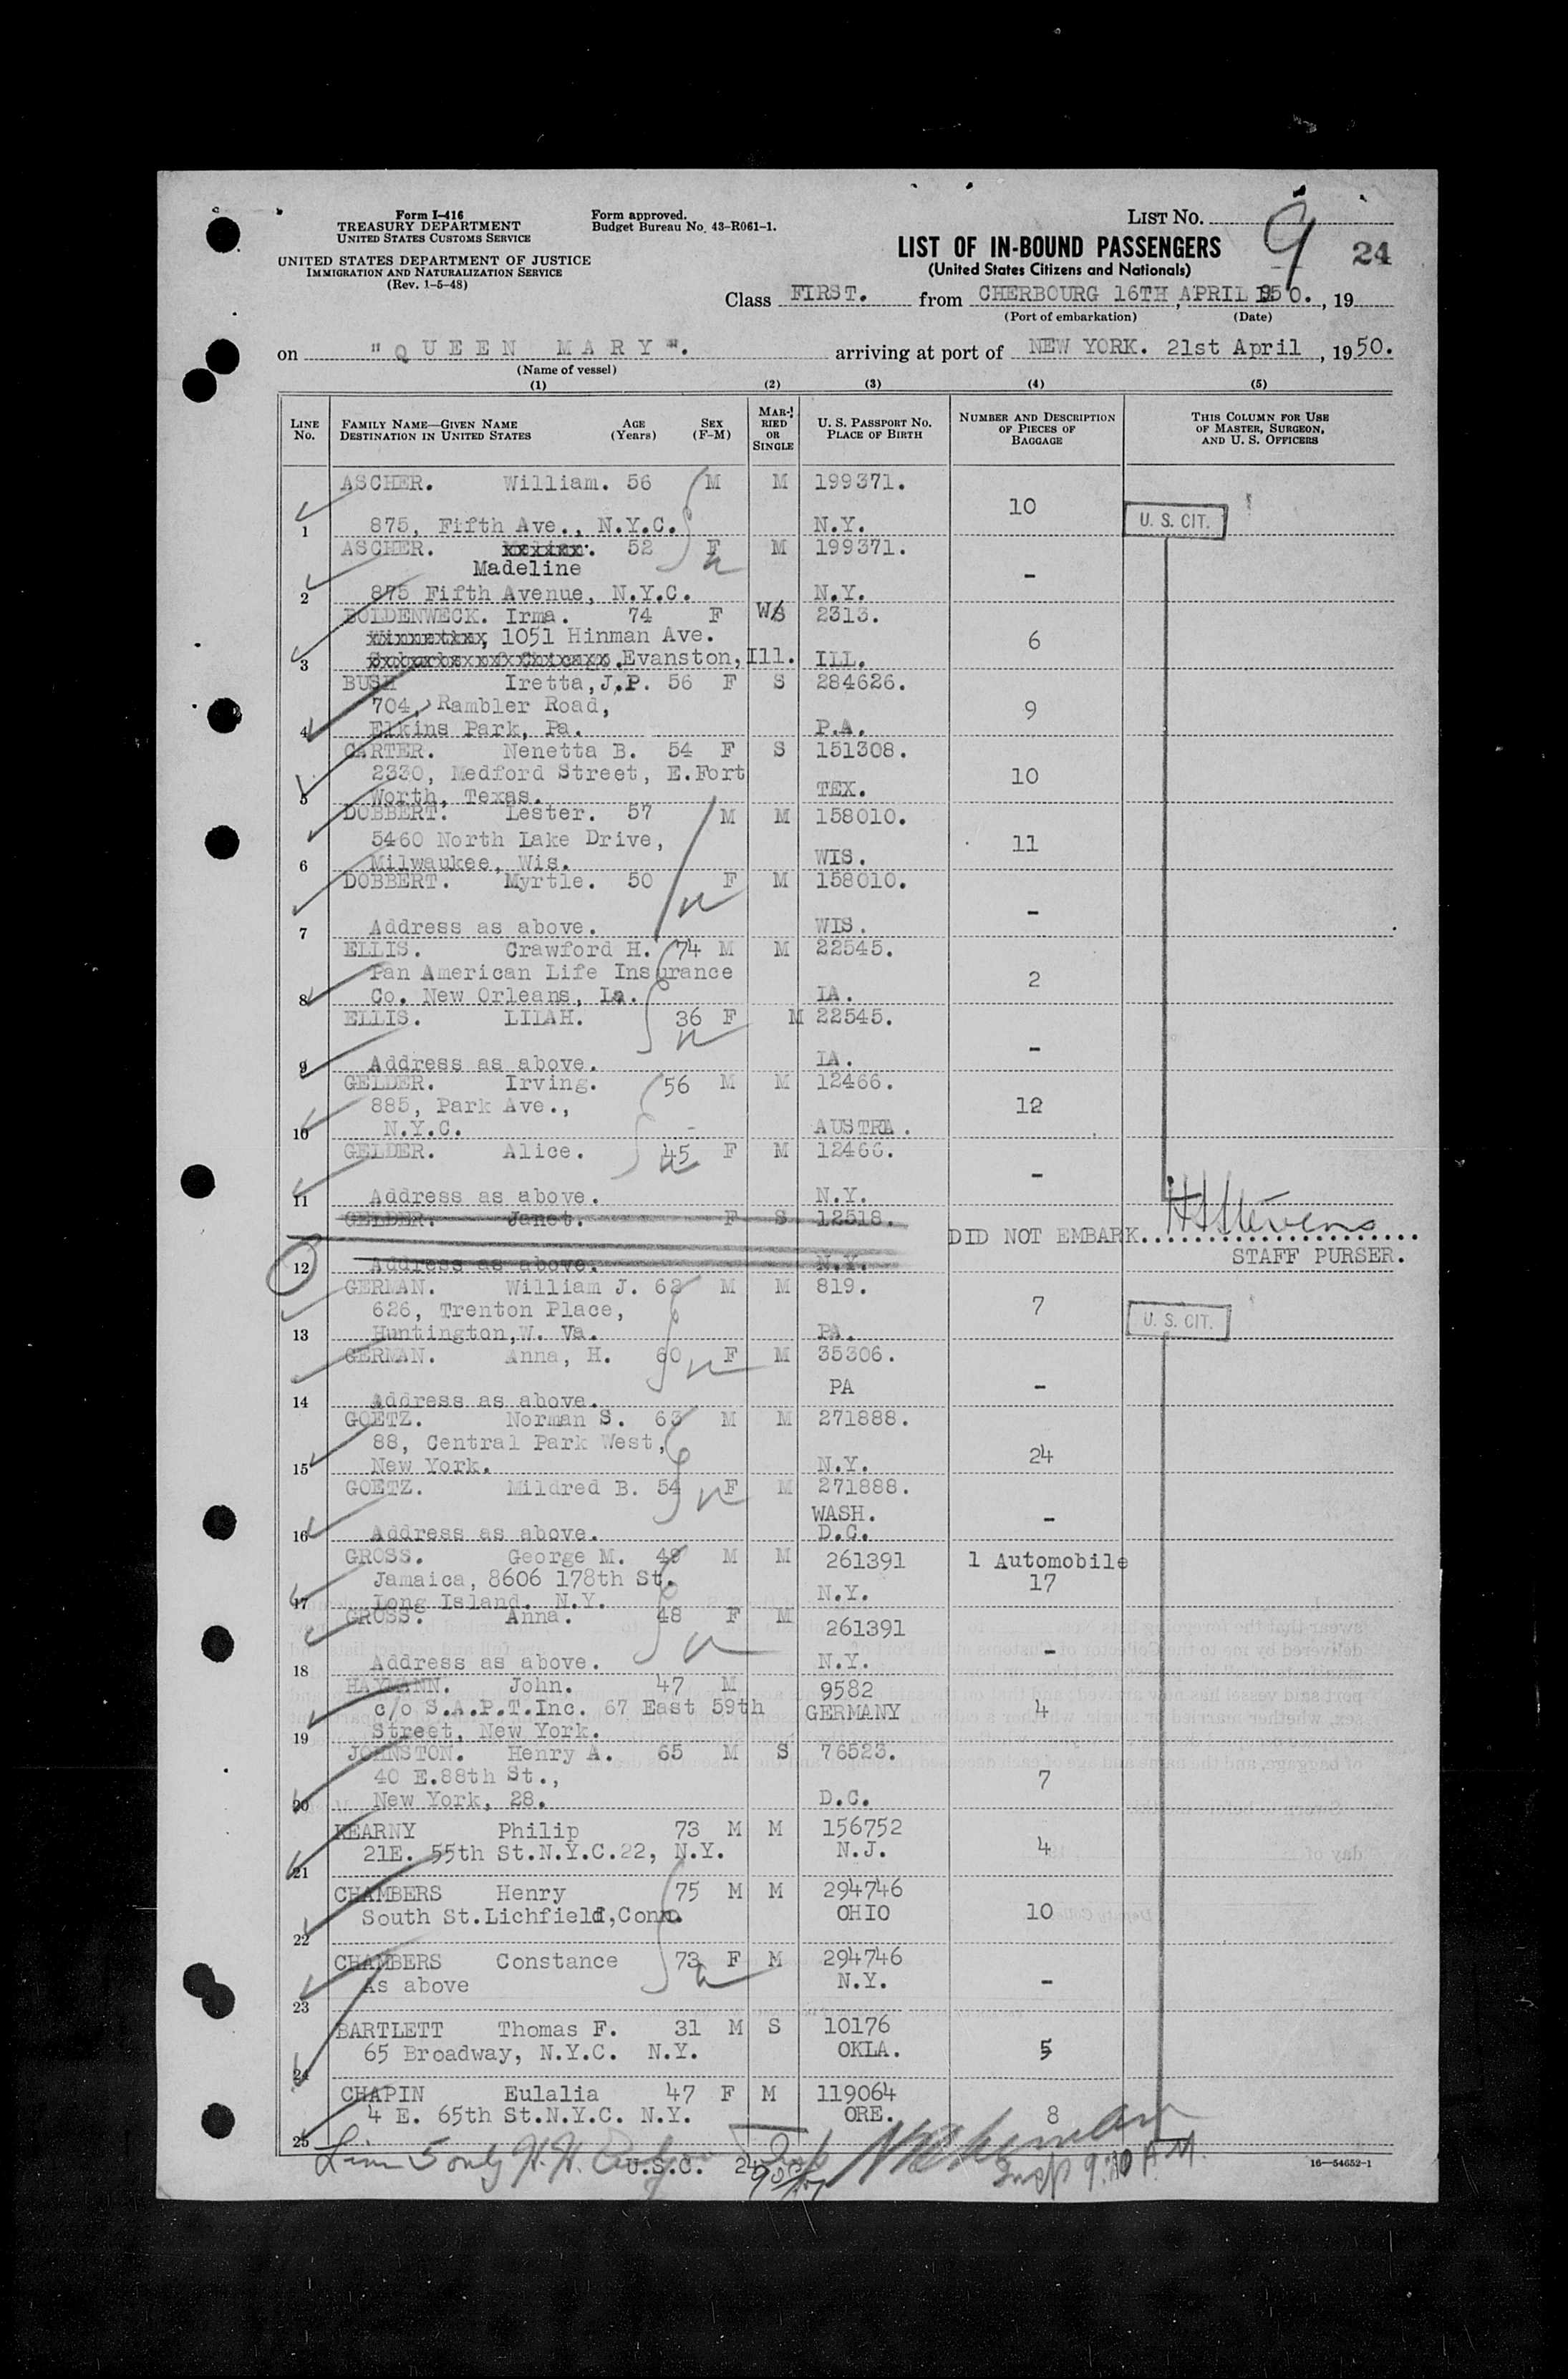 Form I-416
TREASURY DEPARTMENT
UNITED STATES CUSTOMS SERVICE
UNITED STATES DEPARTMENT OF JUSTICE
IMMIGRATION AND NATURALIZATION SERVICE
(Rev. 1-5-48)
Form approved.
Budget Bureau No. 43-R061-1.
LIST NO. 9
24
LIST OF IN-BOUND PASSENGERS
(United States Citizens and Nationals)
Class FIRST. from CHERBOURG 16TH, APRIL 1950., 19
(Port of embarkation) (Date)
on "QUEEN MARY". arriving at port of NEW YORK. 21st April, 1950.
(Name of vessel)
(1) (2) (3) (4) (5)
LINE NO. FAMILY NAME—GIVEN NAME DESTINATION IN UNITED STATES AGE (Years) SEX (F-M) MARRIED OR SINGLE U. S. PASSPORT NO. PLACE OF BIRTH NUMBER AND DESCRIPTION OF PIECES OF BAGGAGE THIS COLUMN FOR USE OF MASTER, SURGEON, AND U. S. OFFICERS
ASCHER. William. 56 M M 199371.
10 U. S. CIT.
1 875, Fifth Ave., N.Y.C. N.Y.
ASCHER. 52 F M 199371.
Madeline -
2 875 Fifth Avenue, N.Y.C. N.Y.
BOLDENWECK. Irma. 74 F W 2313.
1051 Hinman Ave. 6
3 Evanston, Ill. ILL.
BUSH Iretta, J.P. 56 F S 284626.
704, Rambler Road, 9
4 Elkins Park, Pa. P.A.
CARTER. Nenetta B. 54 F S 151308.
2330, Medford Street, E.Fort 10
5 Worth, Texas. TEX.
DOBBERT. Lester. 57 M M 158010.
5460 North Lake Drive, 11
6 Milwaukee, Wis. WIS.
DOBBERT. Myrtle. 50 F M 158010.
-
7 Address as above. WIS.
ELLIS. Crawford H. 74 M M 22545.
Pan American Life Insurance 2
8 Co. New Orleans, La. LA.
ELLIS. LILAH. 36 F M 22545.
-
9 Address as above. LA.
GELDER. Irving. 56 M M 12466.
885, Park Ave., 12
10 N.Y.C. AUSTRA.
GELDER. Alice. 45 F M 12466.
-
11 Address as above. N.Y.
GELDER. Janet. F S 12518.
DID NOT EMBARK. H Stevens
STAFF PURSER.
12 Address as above. N.Y.
GERMAN. William J. 62 M M 819.
626, Trenton Place, 7 U. S. CIT.
13 Huntington, W. Va. PA.
GERMAN. Anna, H. 60 F M 35306.
PA -
14 Address as above.
GOETZ. Norman S. 63 M M 271888.
88, Central Park West, 24
15 New York. N.Y.
GOETZ. Mildred B. 54 F M 271888.
WASH. -
16 Address as above. D.C.
GROSS. George M. 48 M M 261391 1 Automobile
Jamaica, 8606 178th St. 17
17 Long Island. N.Y. N.Y.
GROSS. Anna. 48 F M 261391
-
18 Address as above. N.Y.
HAYMANN. John. 47 M 9582
c/o S.A.P.T.Inc. 67 East 59th GERMANY 4
19 Street, New York.
JOHNSTON. Henry A. 65 M S 76523.
40 E.88th St., 7
20 New York, 28. D.C.
KEARNY Philip 73 M M 156752
21E. 55th St.N.Y.C.22, N.Y. N.J. 4
21
CHAMBERS Henry 75 M M 294746
South St.Lichfield,Conn. OHIO 10
22
CHAMBERS Constance 73 F M 294746
As above N.Y. -
23
BARTLETT Thomas F. 31 M S 10176
65 Broadway, N.Y.C. N.Y. OKLA. 5
24
CHAPIN Eulalia 47 F M 119064
4 E. 65th St.N.Y.C. N.Y. ORE. 8
25
Line 5 only H.H. U.S.C. 24
Insp 9.10 A.M.
16—54652-1